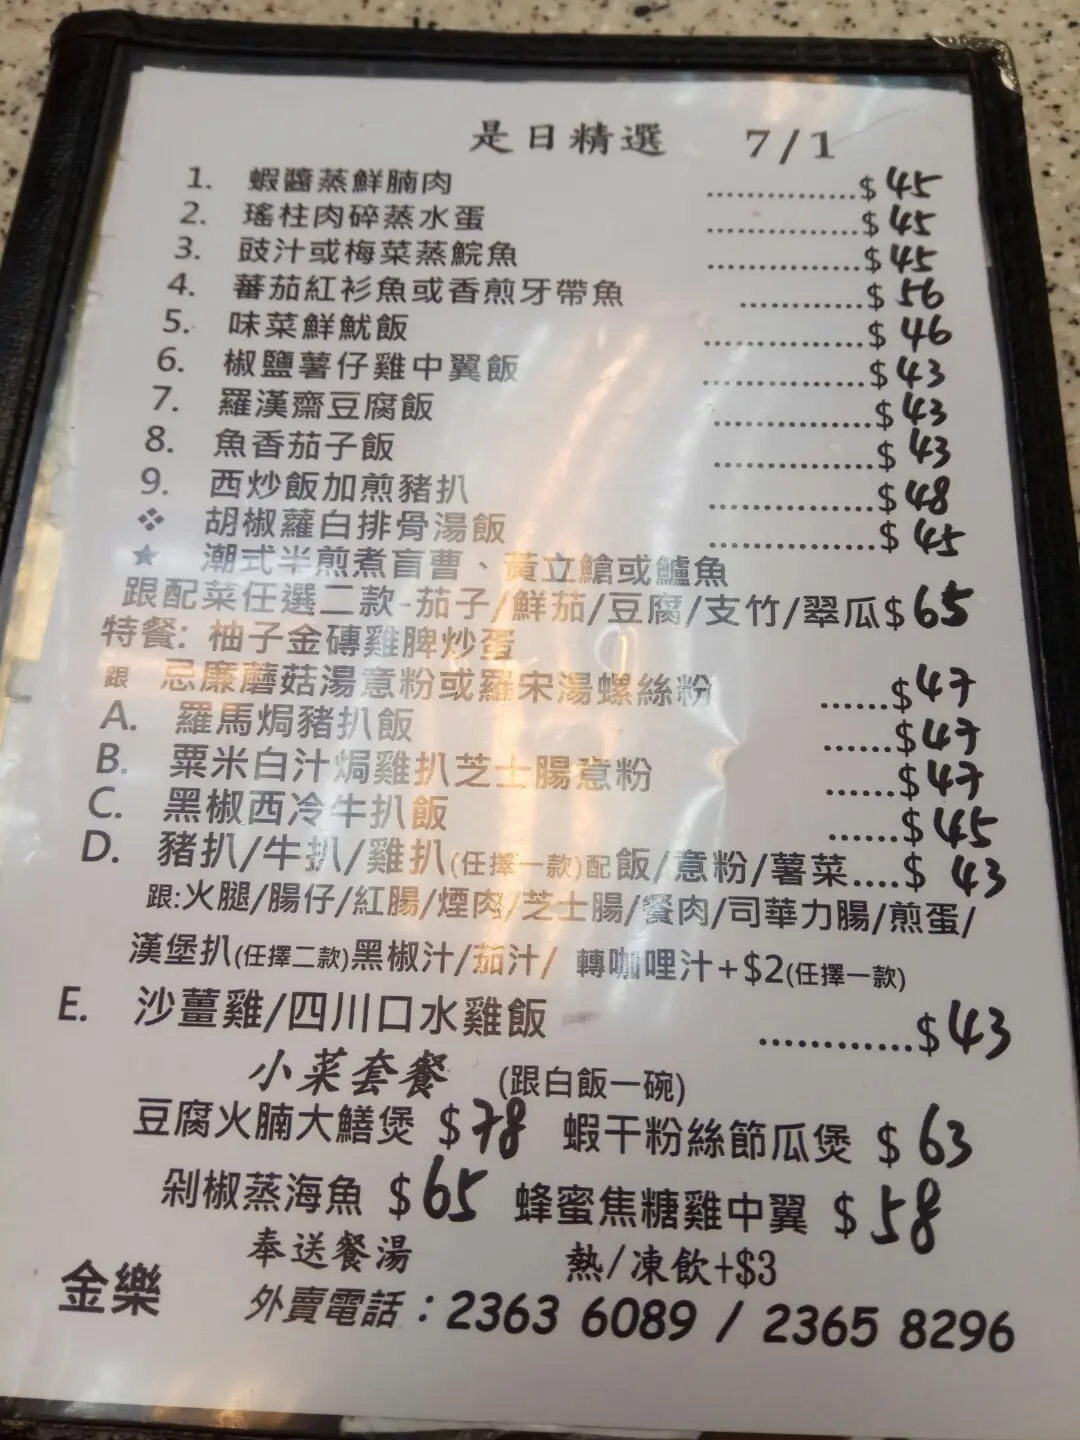 是日精選 7/1
1. 蝦醬蒸鮮腩肉 ...............$ 45
2. 瑤柱肉碎蒸水蛋 ...............$ 45
3. 豉汁或梅菜蒸鯇魚 ...............$ 45
4. 蕃茄紅衫魚或香煎牙帶魚 ............$ 56
5. 味菜鮮魷飯 ...............$ 46
6. 椒鹽薯仔雞中翼飯 ...............$ 43
7. 羅漢齋豆腐飯 ...............$ 43
8. 魚香茄子飯 ...............$ 43
9. 西炒飯加煎豬扒 ...............$ 48
❖ 胡椒蘿白排骨湯飯 ...............$ 45
★ 潮式半煎煮盲曹、黃立鯧或鱸魚
跟配菜任選二款-茄子/鮮茄/豆腐/支竹/翠瓜$ 65
特餐: 柚子金磚雞脾炒蛋
跟 忌廉蘑菇湯意粉或羅宋湯螺絲粉 ......$ 47
A. 羅馬焗豬扒飯 ......$ 47
B. 粟米白汁焗雞扒芝士腸意粉 ......$ 47
C. 黑椒西冷牛扒飯 ......$ 45
D. 豬扒/牛扒/雞扒(任擇一款)配飯/意粉/薯菜....$ 43
跟:火腿/腸仔/紅腸/煙肉/芝士腸/餐肉/司華力腸/煎蛋/
漢堡扒(任擇二款)黑椒汁/茄汁/ 轉咖哩汁+$2(任擇一款)
E. 沙薑雞/四川口水雞飯 ............$ 43
小菜套餐 (跟白飯一碗)
豆腐火腩大鱔煲 $ 78 蝦干粉絲節瓜煲 $ 63
剁椒蒸海魚 $ 65 蜂蜜焦糖雞中翼 $ 58
奉送餐湯 熱/凍飲+$3
金樂 外賣電話：2363 6089 / 2365 8296